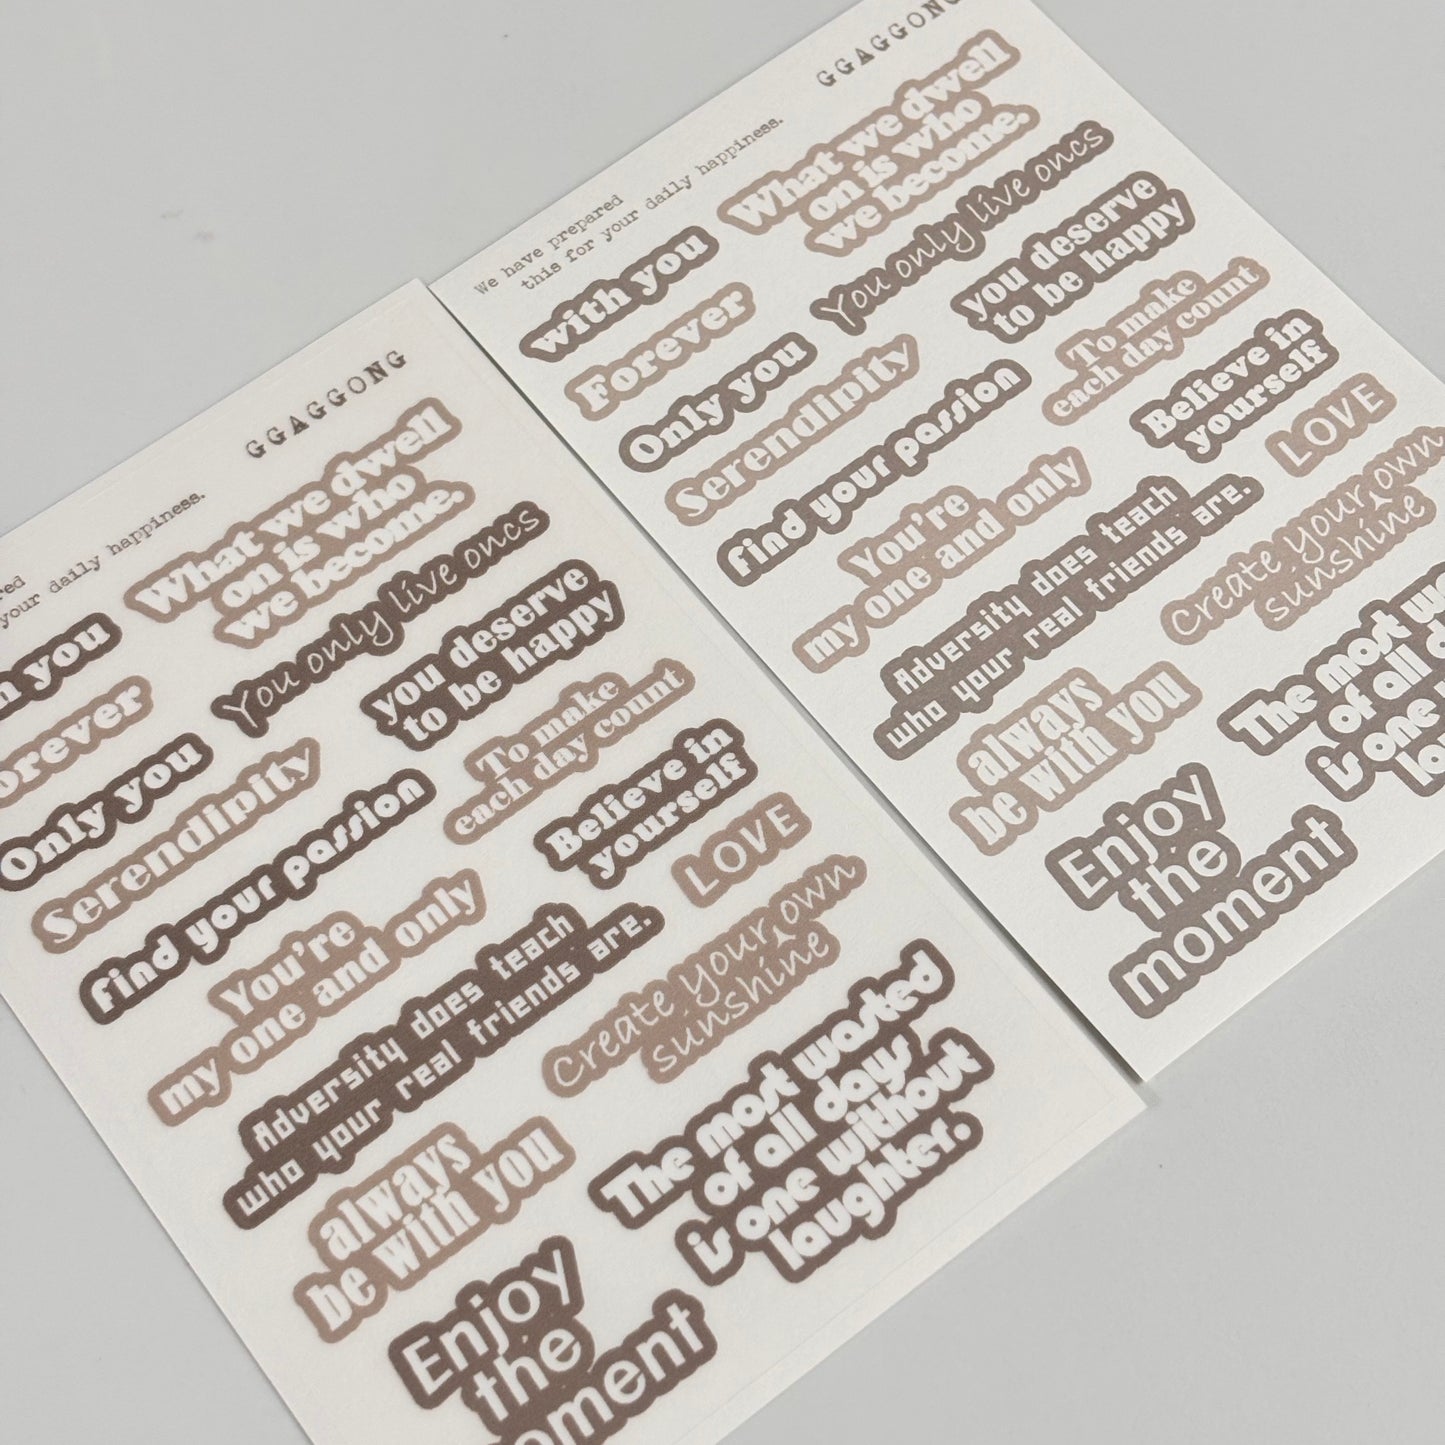 GGAGGONG
your daily happiness.
What we dwell
on is who
we become.
you
You only live oncs
orever
you deserve
to be happy
Only you
To make
each day count
Serendipity
Believe in
yourself
Find your passion
LOVE
You're
my one and only
Create your own
sunshine
Adversity does teach
who your real friends are.
always
be with you
The most wasted
of all days
is one without
laughter.
Enjoy
the
oment
GGAGGONG
We have prepared
this for your daily happiness.
What we dwell
on is who
we become.
with you
You only live oncs
Forever
you deserve
to be happy
Only you
To make
each day count
Serendipity
Believe in
yourself
Find your passion
LOVE
You're
my one and only
Create your own
sunshine
Adversity does teach
who your real friends are.
always
be with you
The most w
of all d
is one
la
Enjoy
the
moment